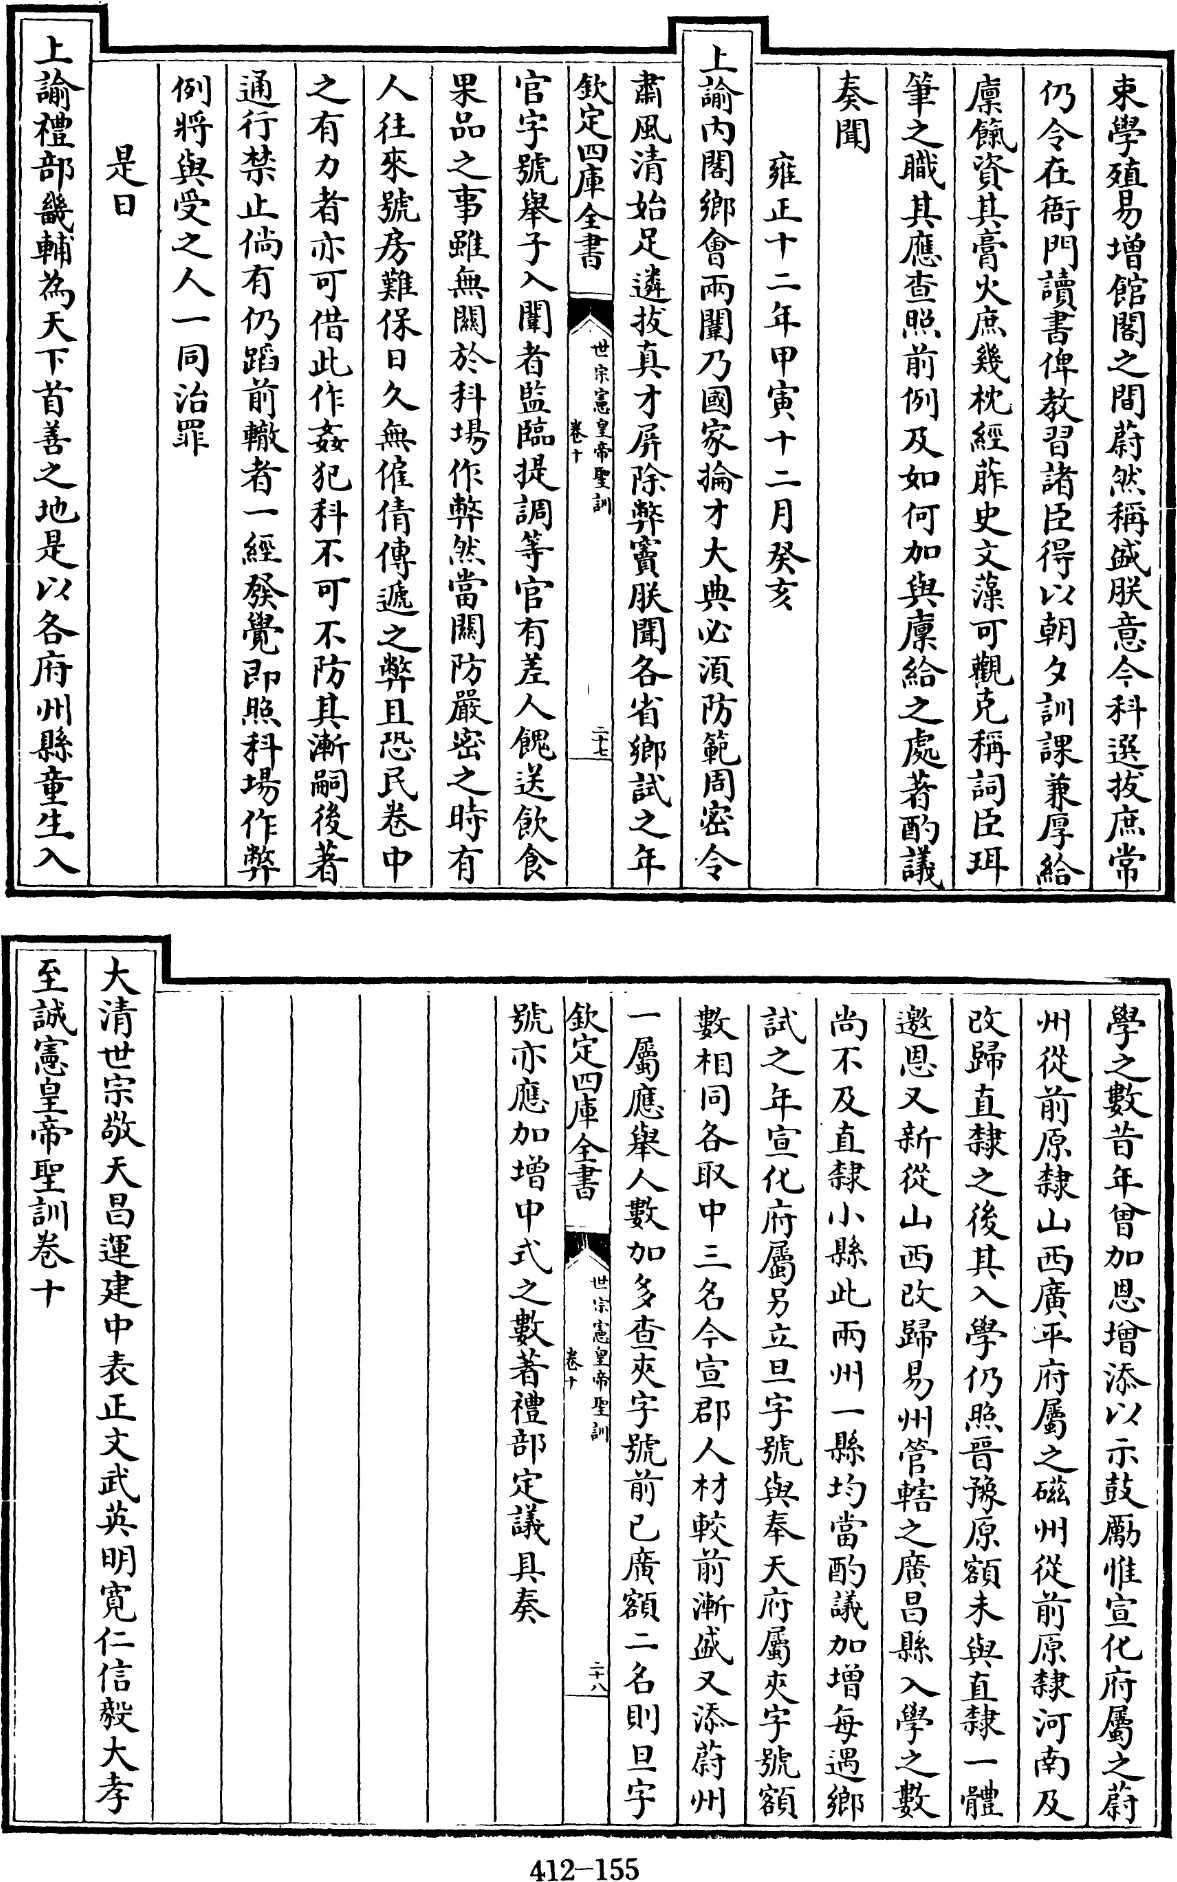 束學殖易增館閣之間蔚然稱盛朕意今科選拔庶常
仍令在衙門讀書俾教習諸臣得以朝夕訓課兼厚給
廩餼資其膏火庶幾枕經葄史文藻可觀克稱詞臣珥
筆之職其應查照前例及如何加與廪給之處著酌議
奏聞
雍正十二年甲寅十二月癸亥
上諭內閣鄉會兩闈乃國家掄才大典必須防範周密令
肅風清始足遴拔真才屏除弊竇朕聞各省鄉試之年
欽定四庫全書
世宗憲皇帝聖訓
卷十
二十七
官字號舉子入闈者監臨提調等官有差人餽送飲食
果品之事雖無關於科場作弊然當關防嚴密之時有
人往來號房難保日久無僱倩傳遞之弊且恐民卷中
之有力者亦可借此作姦犯科不可不防其漸嗣後著
通行禁止倘有仍蹈前轍者一經發覺即照科場作弊
例將與受之人一同治罪
是日
上諭禮部畿輔為天下首善之地是以各府州縣童生入
學之數昔年曾加恩增添以示鼓勵惟宣化府屬之蔚
州從前原隸山西廣平府屬之磁州從前原隸河南及
改歸直隸之後其入學仍照晉豫原額未與直隸一體
邀恩又新從山西改歸易州管轄之廣昌縣入學之數
尚不及直隸小縣此兩州一縣均當酌議加增每遇鄉
試之年宣化府屬另立旦字號與奉天府屬夾字號額
數相同各取中三名今宣郡人材較前漸盛又添蔚州
一屬應舉人數加多查夾字號前已廣額二名則旦字
欽定四庫全書
世宗憲皇帝聖訓
卷十
二十八
號亦應加增中式之數著禮部定議具奏
大清世宗敬天昌運建中表正文武英明寬仁信毅大孝
至誠憲皇帝聖訓卷十
412-155